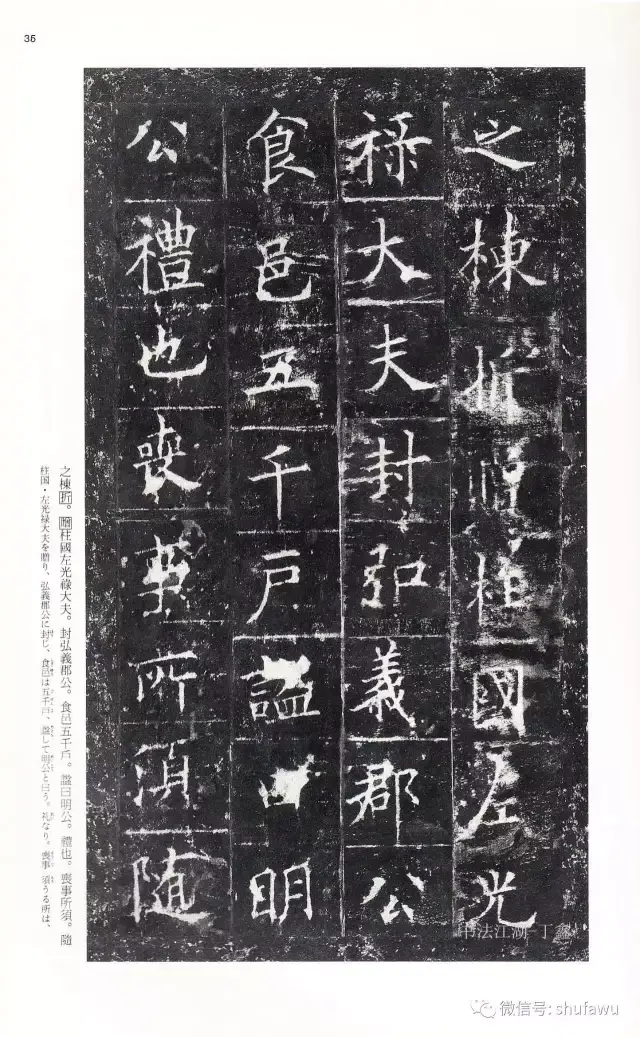 35
之棟折贈柱國左光
祿大夫封弘義郡公
食邑五千戶諡曰明
公禮也喪葬所須隨
之棟折。贈柱國左光祿大夫。封弘義郡公。食邑五千戶。諡曰明公。禮也。喪事所須。隨
柱国・左光禄大夫を贈り、弘義郡公に封じ、食邑は五千戸、諡して明公と曰う。礼なり。喪事 須うる所は、
微信号: shufawu